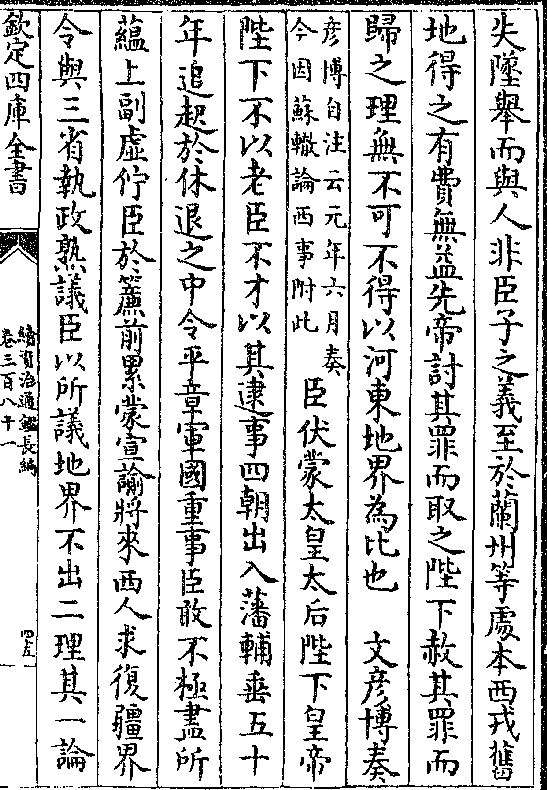 失墜舉而與人非臣子之義至於蘭州等處本西戎舊
地得之有費無益先帝討其罪而取之陛下赦其罪而
歸之理無不可不得以河東地界為比也　文彥博奏
彥博自注云元年六月奏
今因蘇轍論西事附此
臣伏蒙太皇太后陛下皇帝
陛下不以老臣不才以其逮事四朝出入藩輔垂五十
年追起於休退之中令平章軍國重事臣敢不極盡所
蘊上副虛佇臣於簾前累蒙宣諭將來西人求復疆界
令與三省執政熟議臣以所議地界不出二理其一論
欽定四庫全書
續資治通鑑長編
卷三百八十一
四五